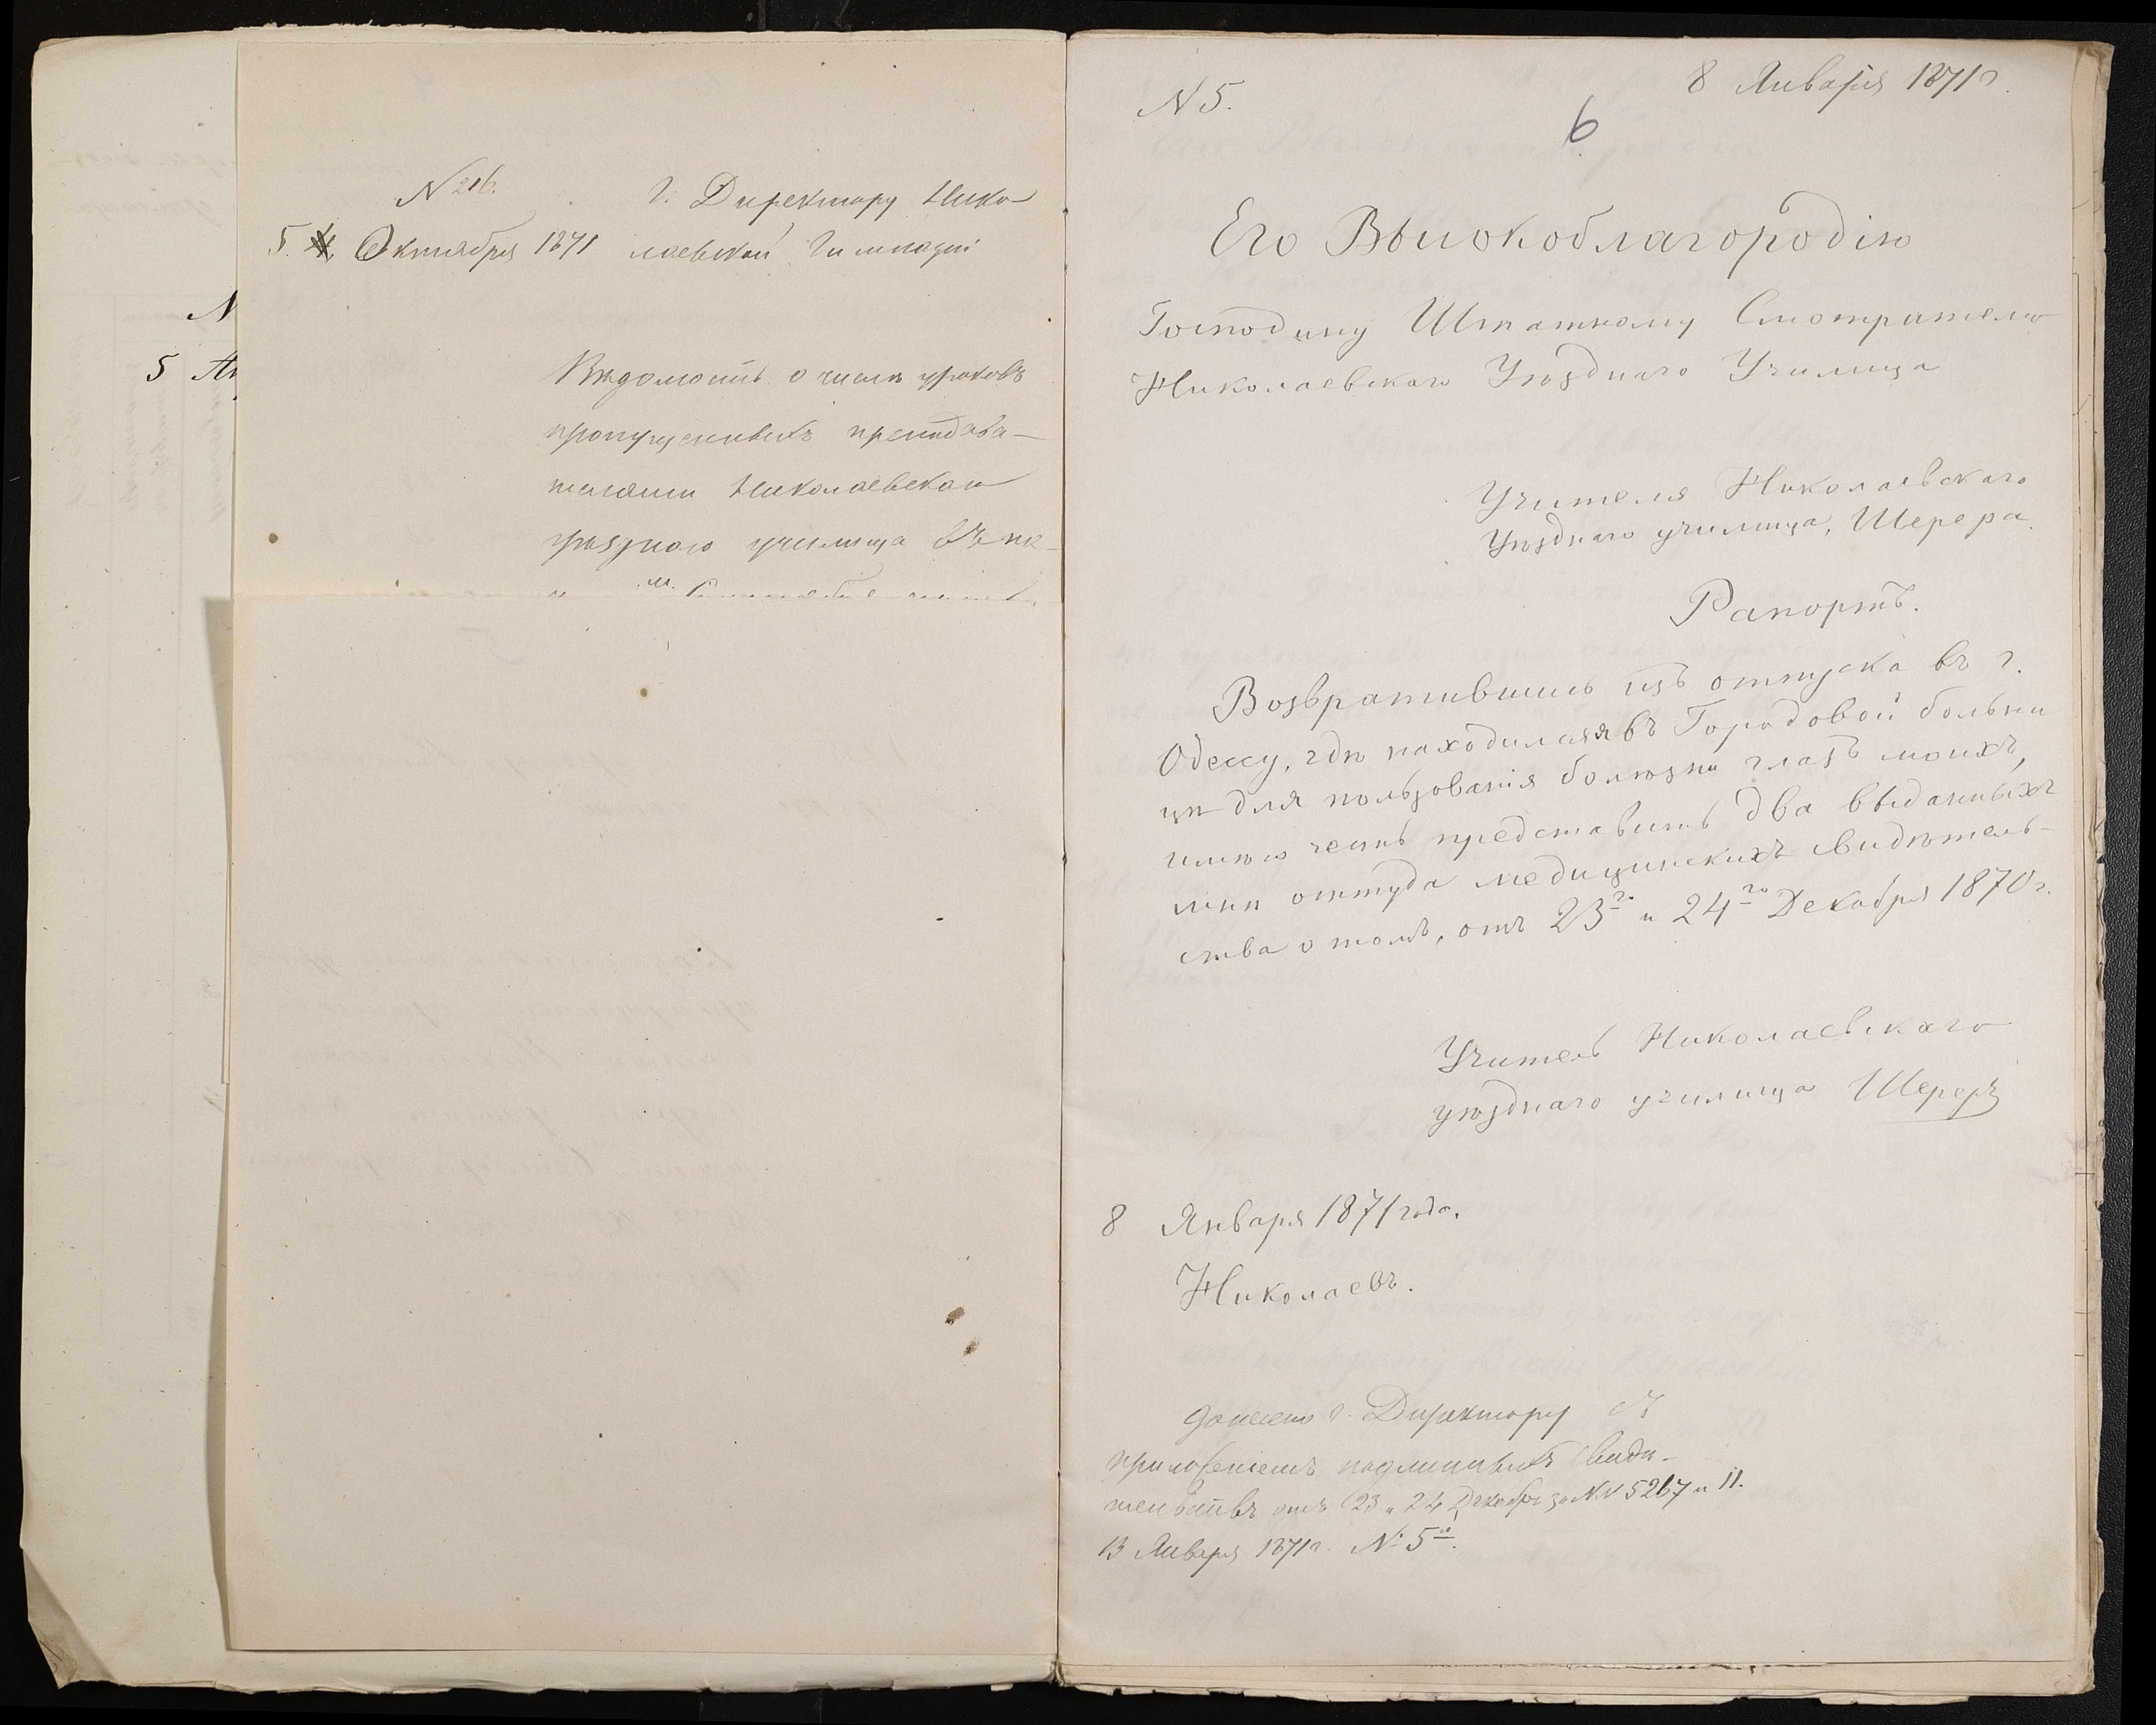 N
5 Ап
N 216.
5. Октября 1871
г. Директору Нико-
лаевской Гимназии
Ведомость о числе уроковъ
пропущенныхъ препадава-
телями Николаевскаго
уѣзднаго училища въ ме-
N 5.
8 Января 1871 г.
6
Его Высокоблагородію
Господину Штатному Смотрителю
Николаевскаго Уѣзднаго Училища
Учителя Николаевскаго
Уѣзднаго училища, Шерера.
Рапортъ.
Возвратившись изъ отпуска въ г.
Одессу, гдѣ находился я въ Городовой больни
цѣ для пользованія болѣзни глазъ моихъ,
имѣю честь представить два выданныхъ
мнѣ оттуда медицинскихъ свидѣтель-
ства о томъ, отъ 23го и 24го Декабря 1870 г.
Учитель Николаевскаго
уѣзднаго училища Шереръ
8 Января 1871 года.
Николаевъ.
Донесено г. Директору съ
приложеніемъ подлинныхъ свидѣ-
тельствъ отъ 23 и 24 Декабря за NN 5267 и 11.
13 Января 1871 г. № 5.